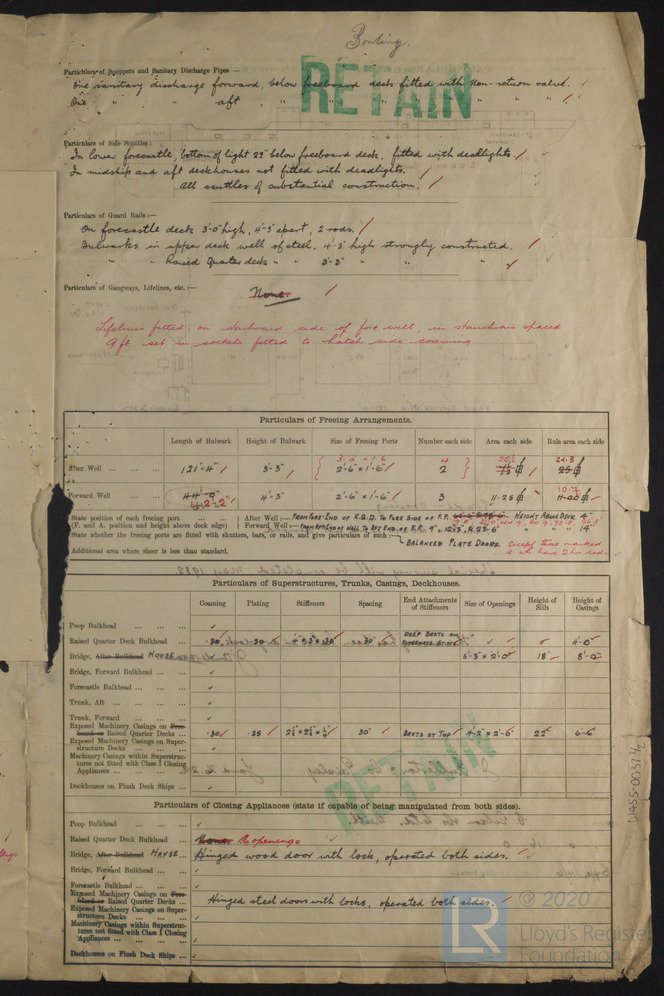 Particulars of Scuppers and Sanitary Discharge Pipes —
One sanitary discharge forward, below freeboard deck fitted with Non-return valve.
One " " aft " " " " " " " "
RETAIN
Particulars of Side Scuttles:
In lower forecastle, bottom of light 22" below freeboard deck, fitted with deadlights.
In midship and aft deckhouses not fitted with deadlights.
All scuttles of substantial construction.
Particulars of Guard Rails:—
On forecastle deck 3'-0" high, 4'-3" apart, 2 rods.
Bulwarks in upper deck well of steel, 4'-3" high strongly constructed.
" " Raised Quarter deck " " 3'-3" " "
Particulars of Gangways, Lifelines, etc.:—
None.
Lifelines fitted on starboard side of fore well, in stanchions spaced
9ft set in sockets fitted to hatch side coaming
Particulars of Freeing Arrangements.
Length of Bulwark Height of Bulwark Size of Freeing Ports Number each side Area each side Rule area each side
After Well ... ... ... 121'-4" 3'-3" 2'-6" × 1'-6" 2
Forward Well ... ... ... 42'-2" 4'-3" 2'-6" × 1'-6" 3 11.25
State position of each freeing port ... ... ... After Well:— From Fore End of R.Q.D. to Fore Side of F.P. Height Above Deck 9"
(F. and A. position and height above deck edge) Forward Well:—
State whether the freeing ports are fitted with shutters, bars, or rails, and give particulars of such:—
Balanced Plate Doors. Except those marked
Additional area where sheer is less than standard.
Particulars of Superstructures, Trunks, Casings, Deckhouses.
Coaming Plating Stiffeners Spacing End Attachments of Stiffeners Size of Openings Height of Sills Height of Casings
Poop Bulkhead ... ... ...
Raised Quarter Deck Bulkhead ... .30 .30 30" 4'-0"
Bridge, After Bulkhead House 5'-3" × 2'-0" 18" 8'-0"
Bridge, Forward Bulkhead ... ...
Forecastle Bulkhead ... ... ...
Trunk, Aft ... ... ... ...
Trunk, Forward ... ... ...
Exposed Machinery Casings on Free-
board or Raised Quarter Decks ... .30 25 30" Beats at Top 4'-2" × 2'-6" 22" 6'-6"
Exposed Machinery Casings on Super-
structure Decks ... ... ...
Machinery Casings within Superstruc-
tures not fitted with Class I Closing
Appliances ... ... ... ...
Deckhouses on Flush Deck Ships ...
RETAIN
Particulars of Closing Appliances (state if capable of being manipulated from both sides).
Poop Bulkhead ... ... ...
Raised Quarter Deck Bulkhead ... None No openings
Bridge, After Bulkhead House ... Hinged wood door with lock, operated both sides.
Bridge, Forward Bulkhead ... ...
Forecastle Bulkhead ... ... ...
Exposed Machinery Casings on Free-
board or Raised Quarter Decks ... Hinged steel doors with locks, operated both sides.
Exposed Machinery Casings on Super-
structure Decks ... ... ...
Machinery Casings within Superstruc-
tures not fitted with Class I Closing
Appliances ... ... ... ...
Deckhouses on Flush Deck Ships ...
W455-0037 ¼
© 2020
LR
Lloyd's Register
Foundation